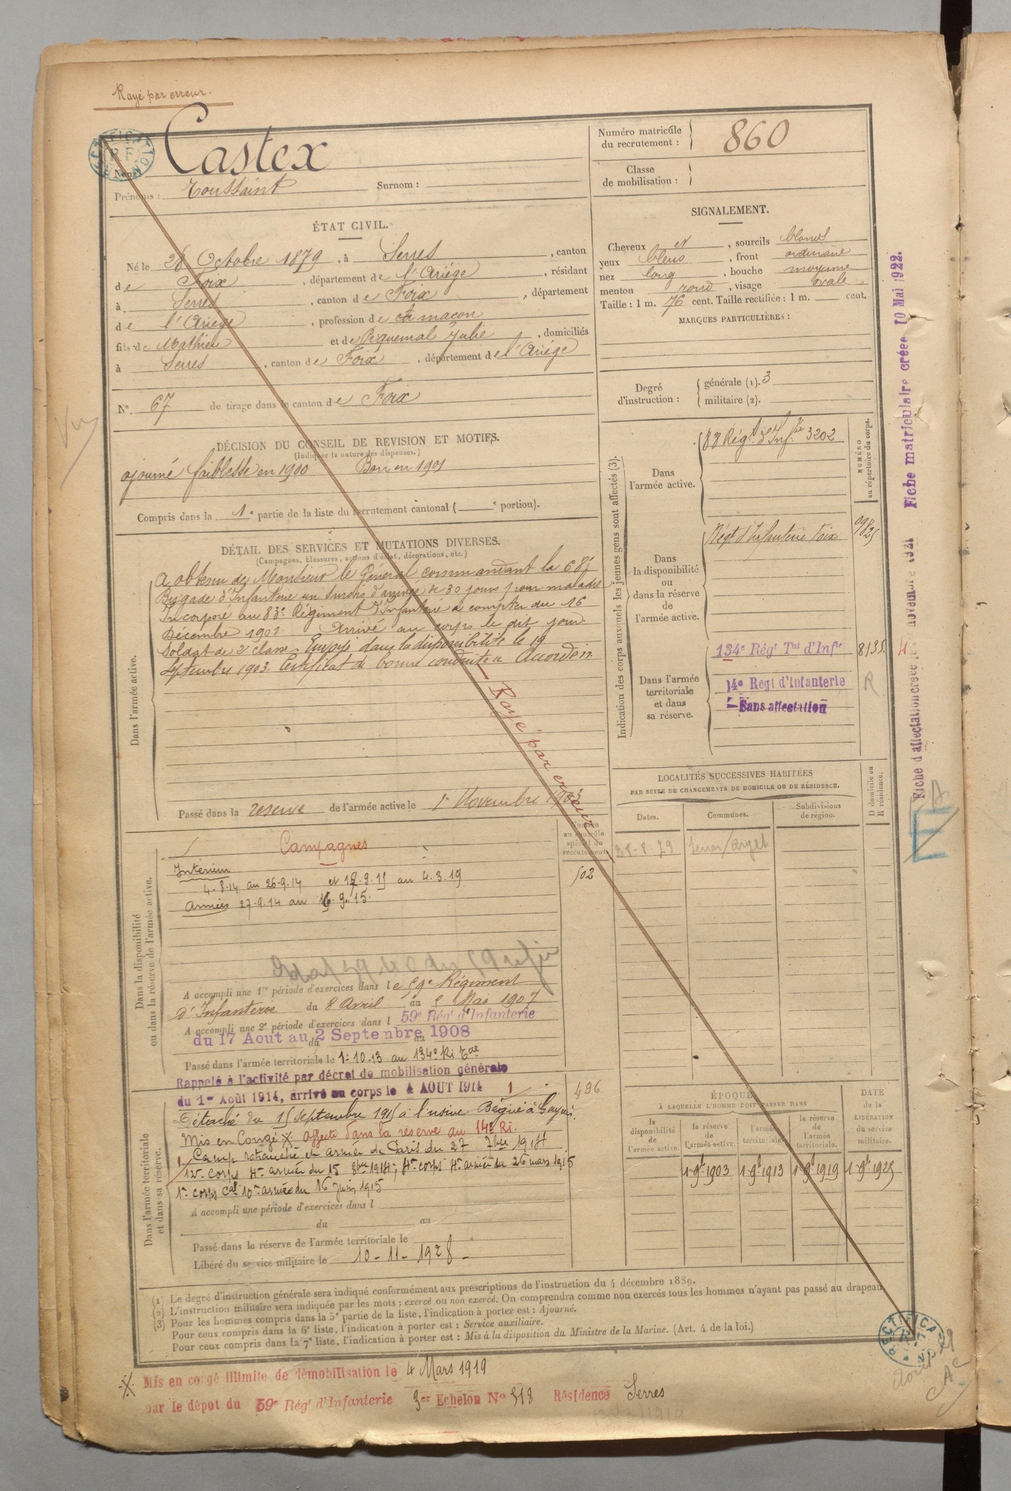 Rayé par erreur.
Nom : Castex
Prénoms : Toussaint Surnom :
Numéro matricule du recrutement : 860
Classe de mobilisation :
ÉTAT CIVIL.
Né le 28 Octobre 1879, à Serres, canton
de Foix, département de l'Ariège, résidant
à Serres, canton de Foix, département
de l'Ariège, profession de maçon
fils de Mathieu et de Piquemal Julie, domiciliés
à Serres, canton de Foix, département de l'Ariège
N° 67 de tirage dans le canton de Foix
SIGNALEMENT.
Cheveux et, sourcils blonds
yeux bleus, front ordinaire
nez long, bouche moyenne
menton rond, visage ovale
Taille : 1 m. 76 cent. Taille rectifiée : 1 m. cent.
MARQUES PARTICULIÈRES :
Degré d'instruction : générale (1). 3
militaire (2).
DÉCISION DU CONSEIL DE REVISION ET MOTIFS.
(Indiquer la nature des dispenses.)
ajourné faiblesse en 1900 Bon en 1901
Compris dans la 1e partie de la liste du recrutement cantonal ( e portion).
DÉTAIL DES SERVICES ET MUTATIONS DIVERSES.
(Campagnes, blessures, actions d'éclat, décorations, etc.)
Dans l'armée active.
A obtenu de Monsieur le Général commandant la 68e
Brigade d'Infanterie un sursis d'arrivée de 30 jours pour maladie
Incorporé au 83e Régiment d'Infanterie à compter du 16
Décembre 1901. Arrivé au corps le dit jour
Soldat de 2e classe. Envoyé dans la disponibilité le 19
Septembre 1903. Certificat de bonne conduite Accordé
Rayé par erreur
Passé dans la réserve de l'armée active le 1er Novembre 1903
Indication des corps auxquels les jeunes gens sont affectés (3).
NUMÉRO au répertoire du corps.
Dans l'armée active.
83 Régt d'Infie 3202
Dans la disponibilité ou dans la réserve de l'armée active.
Régt d'Infanterie Foix
Dans l'armée territoriale et dans sa réserve.
134e Régt Tal d'Infie 8135
14e Regt d'Infanterie R
Sans affectation
Fiche matriculaire créée 10 Mai 1922.
Fiche d'affectation créée novembre 1921
LOCALITÉS SUCCESSIVES HABITÉES
PAR SUITE DE CHANGEMENTS DE DOMICILE OU DE RÉSIDENCE.
Dates. Communes. Subdivisions de région. D domicile ou R résidence.
Dans la disponibilité ou dans la réserve de l'armée active.
Campagnes
Intérieur
4-8-14 au 26-9-14 et 18.9.15 au 4.3.19
Armées 27-9-14 au 16-9-15.
502
A accompli une 1re période d'exercices dans le 59e Régiment
d'Infanterie du 8 Avril au 5 Mai 1907
A accompli une 2e période d'exercices dans l 59e Régt d'Infanterie
du 17 Aout au 2 Septembre 1908
Passé dans l'armée territoriale le 1-10-13 au 134e RI
Rappelé à l'activité par décret de mobilisation générale
du 1er Août 1914, arrivé au corps le 4 AOUT 1914
496
Dans l'armée territoriale et dans sa réserve.
Détaché du 15 septembre 1915 à l'usine
Mis en Congé X affecté dans la reserve au 14e RI.
Camp retranché et armée de Paris du 27 7bre 1914
A accompli une période d'exercices dans l
du au
Passé dans la réserve de l'armée territoriale le
Libéré du service militaire le 10-11-1928
ÉPOQUE
À LAQUELLE L'HOMME DOIT PASSER DANS
la disponibilité de l'armée active. la réserve de l'armée active. l'armée territoriale. la réserve de l'armée territoriale. DATE de la LIBÉRATION du service militaire.
1 9bre 1903 1 9bre 1913 1 9bre 1919 1 9bre 1925
(1) Le degré d'instruction générale sera indiqué conformément aux prescriptions de l'instruction du 4 décembre 1889.
(2) L'instruction militaire sera indiquée par les mots : exercé ou non exercé. On comprendra comme non exercés tous les hommes n'ayant pas passé au drapeau
(3) Pour les hommes compris dans la 5e partie de la liste, l'indication à porter est : Ajourné.
Pour ceux compris dans la 6e liste, l'indication à porter est : Service auxiliaire.
Pour ceux compris dans la 7e liste, l'indication à porter est : Mis à la disposition du Ministre de la Marine. (Art. 4 de la loi.)
Mis en congé illimité de démobilisation le 4 Mars 1919
par le dépôt du 59e Régt d'Infanterie 3er Echelon N° 313 Résidence Serres